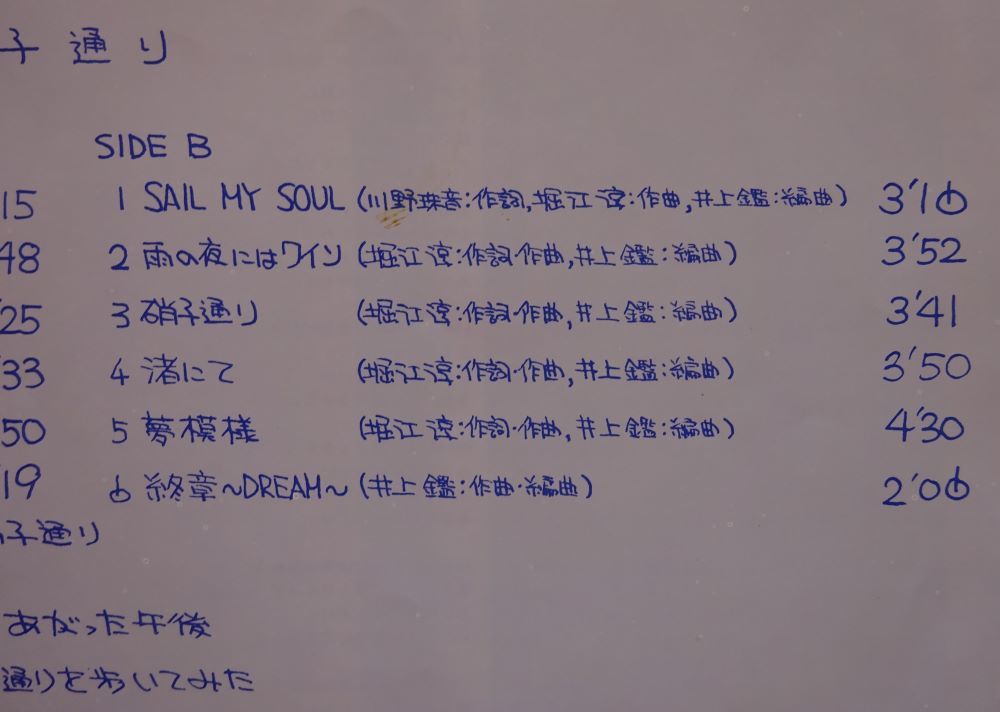 子通り
SIDE B
15 1 SAIL MY SOUL (川野珠音:作詞,堀江淳:作曲,井上鑑:編曲) 3'16
48 2 雨の夜にはワイン (堀江淳:作詞・作曲,井上鑑:編曲) 3'52
25 3 硝子通り (堀江淳:作詞・作曲,井上鑑:編曲) 3'41
33 4 渚にて (堀江淳:作詞・作曲,井上鑑:編曲) 3'50
50 5 夢模様 (堀江淳:作詞・作曲,井上鑑:編曲) 4'30
19 6 終章~DREAM~ (井上鑑:作曲・編曲) 2'06
子通り
あがった午後
通りを歩いてみた